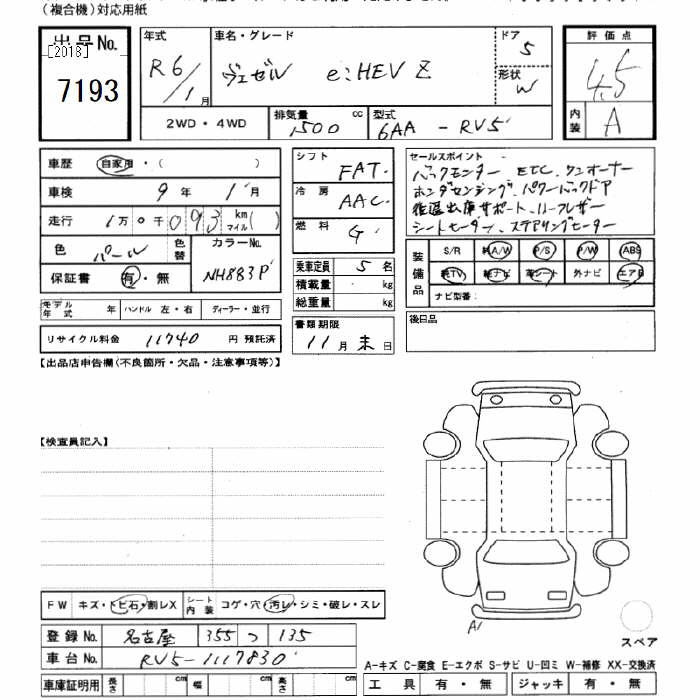 (複合機)対応用紙
出品No.
[2018]
7193
年式 R6/1月
車名・グレード ヴェゼル e:HEV Z
ドア 5
形状 W
評価点 4.5
内装 A
2WD・4WD
排気量 1500 cc
型式 6AA - RV5
車歴 自家用・( )
車検 9年 1月
走行 1万0千093 km マイル( )
色 パール 色替 カラーNo. NH883P
保証書 有・無
モデル年式 年 ハンドル 左・右 ディーラー・並行
リサイクル料金 11740 円 預託済
シフト FAT.
冷房 AAC
燃料 G
乗車定員 5名
積載量 kg
総重量 kg
書類期限
11月末日
セールスポイント
バックモニター ETC. ワンオーナー
ホンダセンシング、パワーバックドア
後退出庫サポート、ハーフレザー
シートヒーター、ステアリングヒーター
装備品 S/R 純A/W P/S P/W ABS
純TV 純ナビ 革シート 外ナビ エアB
ナビ型番:
後日品
【出品店申告欄(不良箇所・欠品・注意事項等)】
【検査員記入】
FW キズ・トビ石・割レX シート内装 コゲ・穴・汚レ・シミ・破レ・スレ
登録No. 名古屋 355 つ 135
車台No. RV5-1117830
車庫証明用 長さ cm 幅 cm 高さ cm
A1
スペア
A-キズ C-腐食 E-エクボ S-サビ U-凹ミ W-補修 XX-交換済
工具 有・無 ジャッキ 有・無